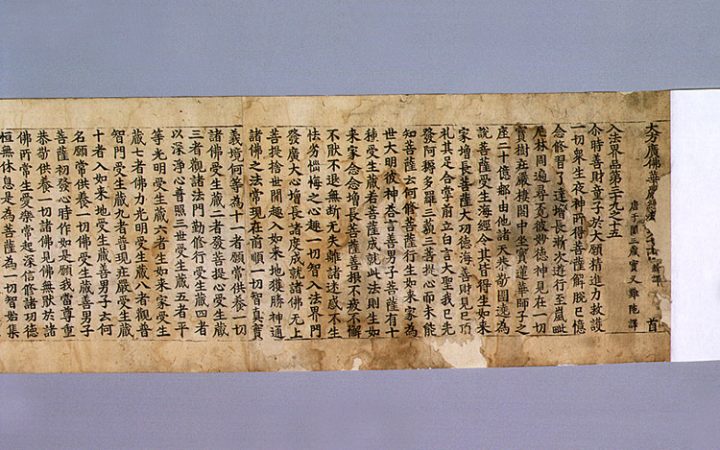 大方廣佛華嚴經
唐于闐三藏實叉難陁譯
首
入法界品第三十九之十五
尒時善財童子於大願精進力救護
一切眾生夜神所得菩薩解脫已憶
念修習了達增長漸次遊行至嵐毗
尼林周遍尋覓彼妙德神見在一切
寶樹莊嚴樓閣中坐寶蓮華師子之
座二十億那由他諸天恭敬圍遶為
說菩薩受生海經令其皆得生如來
家增長菩薩大功德海善財見已頂
礼其足合掌前立白言大聖我已先
發阿耨多羅三藐三菩提心而未能
知菩薩云何修菩薩行生如來家為
世大明彼神荅言善男子菩薩有十
種受生藏若菩薩成就此法則生如
來家念念增長菩薩善根不疲不懈
不猒不退無斷無失離諸迷惑不生
怯劣惱悔之心趣一切智入法界門
發廣大心增長諸度成就諸佛無上
菩提捨世間趣入如來地獲勝神通
諸佛之法常現在前順一切智真實
義境何等為十一者願常供養一切
諸佛受生藏二者發菩提心受生藏
三者觀諸法門勤修行受生藏四者
以深淨心普照三世受生藏五者平
等光明受生藏六者生如來家受生
藏七者佛力光明受生藏八者觀普
智門受生藏九者普現莊嚴受生藏
十者入如來地受生藏善男子云何
名願常供養一切佛受生藏善男子
菩薩初發心時作如是願我當尊重
恭敬供養一切諸佛見佛無猒於諸
佛所常生愛樂常起深信修諸功德
恒無休息是為菩薩為一切智始集